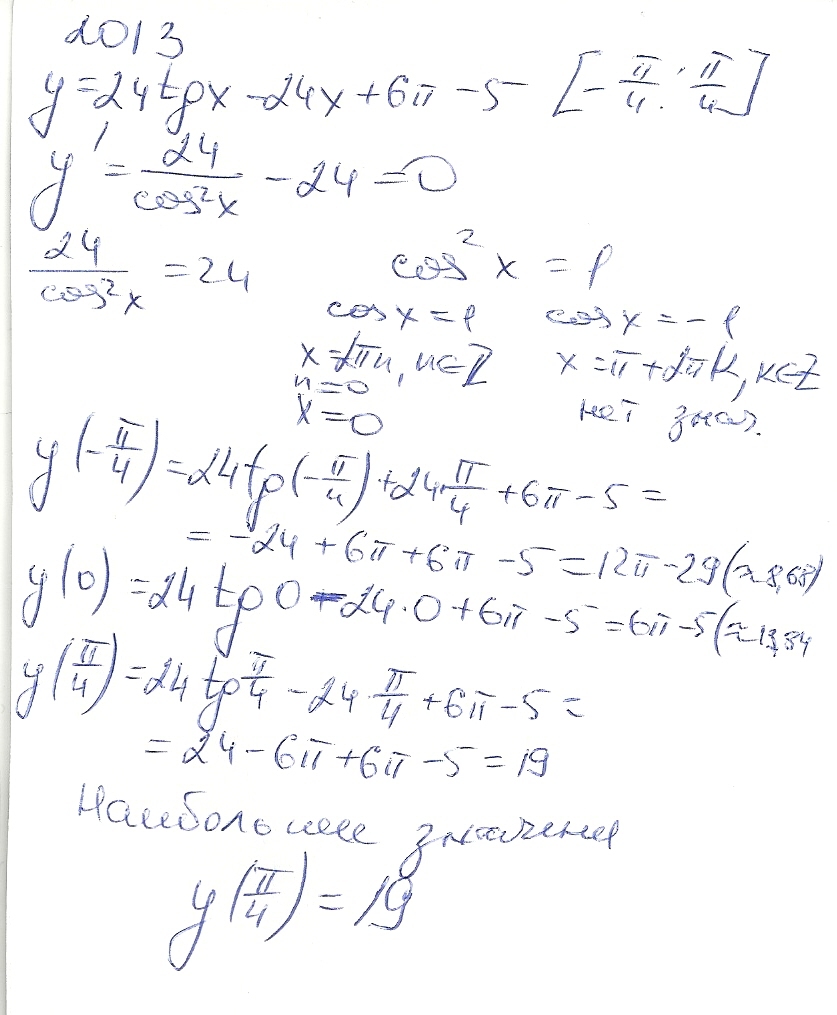 2013
y = 24tgx - 24x + 6π - 5 [-π/4; π/4]
y' = 24/cos²x - 24 = 0
24/cos²x = 24 cos²x = 1
cosx = 1 cosx = -1
x = 2πn, n∈Z x = π + 2πk, k∈Z
n = 0
x = 0 нет знач.
y(-π/4) = 24tg(-π/4) + 24·π/4 + 6π - 5 =
= -24 + 6π + 6π - 5 = 12π - 29 (≈8,68)
y(0) = 24tg0 - 24·0 + 6π - 5 = 6π - 5 (≈13,84
y(π/4) = 24tgπ/4 - 24 π/4 + 6π - 5 =
= 24 - 6π + 6π - 5 = 19
Наибольшее значение
y(π/4) = 19